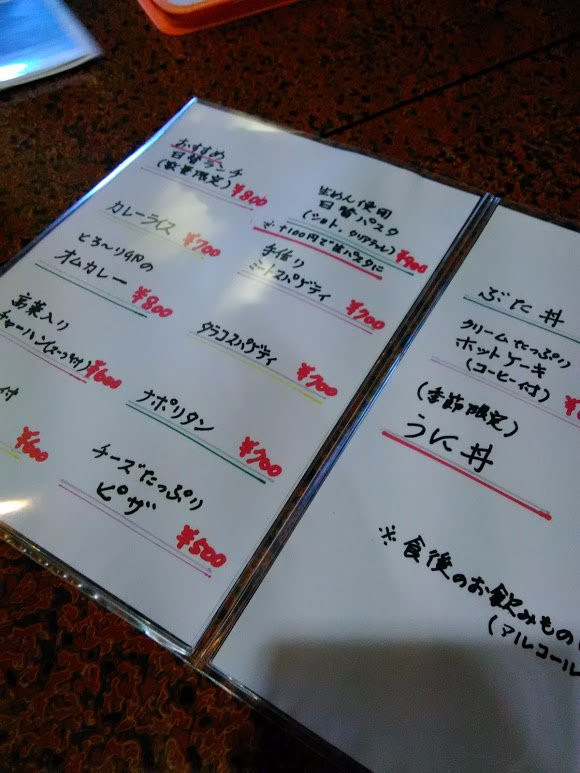 おすすめ
日替ランチ
(数量限定) ¥800
カレーライス
¥700
とろ〜り卵の
オムカレー
¥800
高菜入り
チャーハン(スープ付)
¥600
付
生めん使用
日替パスタ
¥900
※+100円で生パスタに
手作り
ミートスパゲティ
¥700
タラコスパゲティ
¥700
ナポリタン
¥700
チーズたっぷり
ピザ
¥500
ぶた丼
クリームたっぷり
ホットケーキ
(コーヒー付)
(季節限定)
うに丼
※食後のお飲みもの
(アルコール